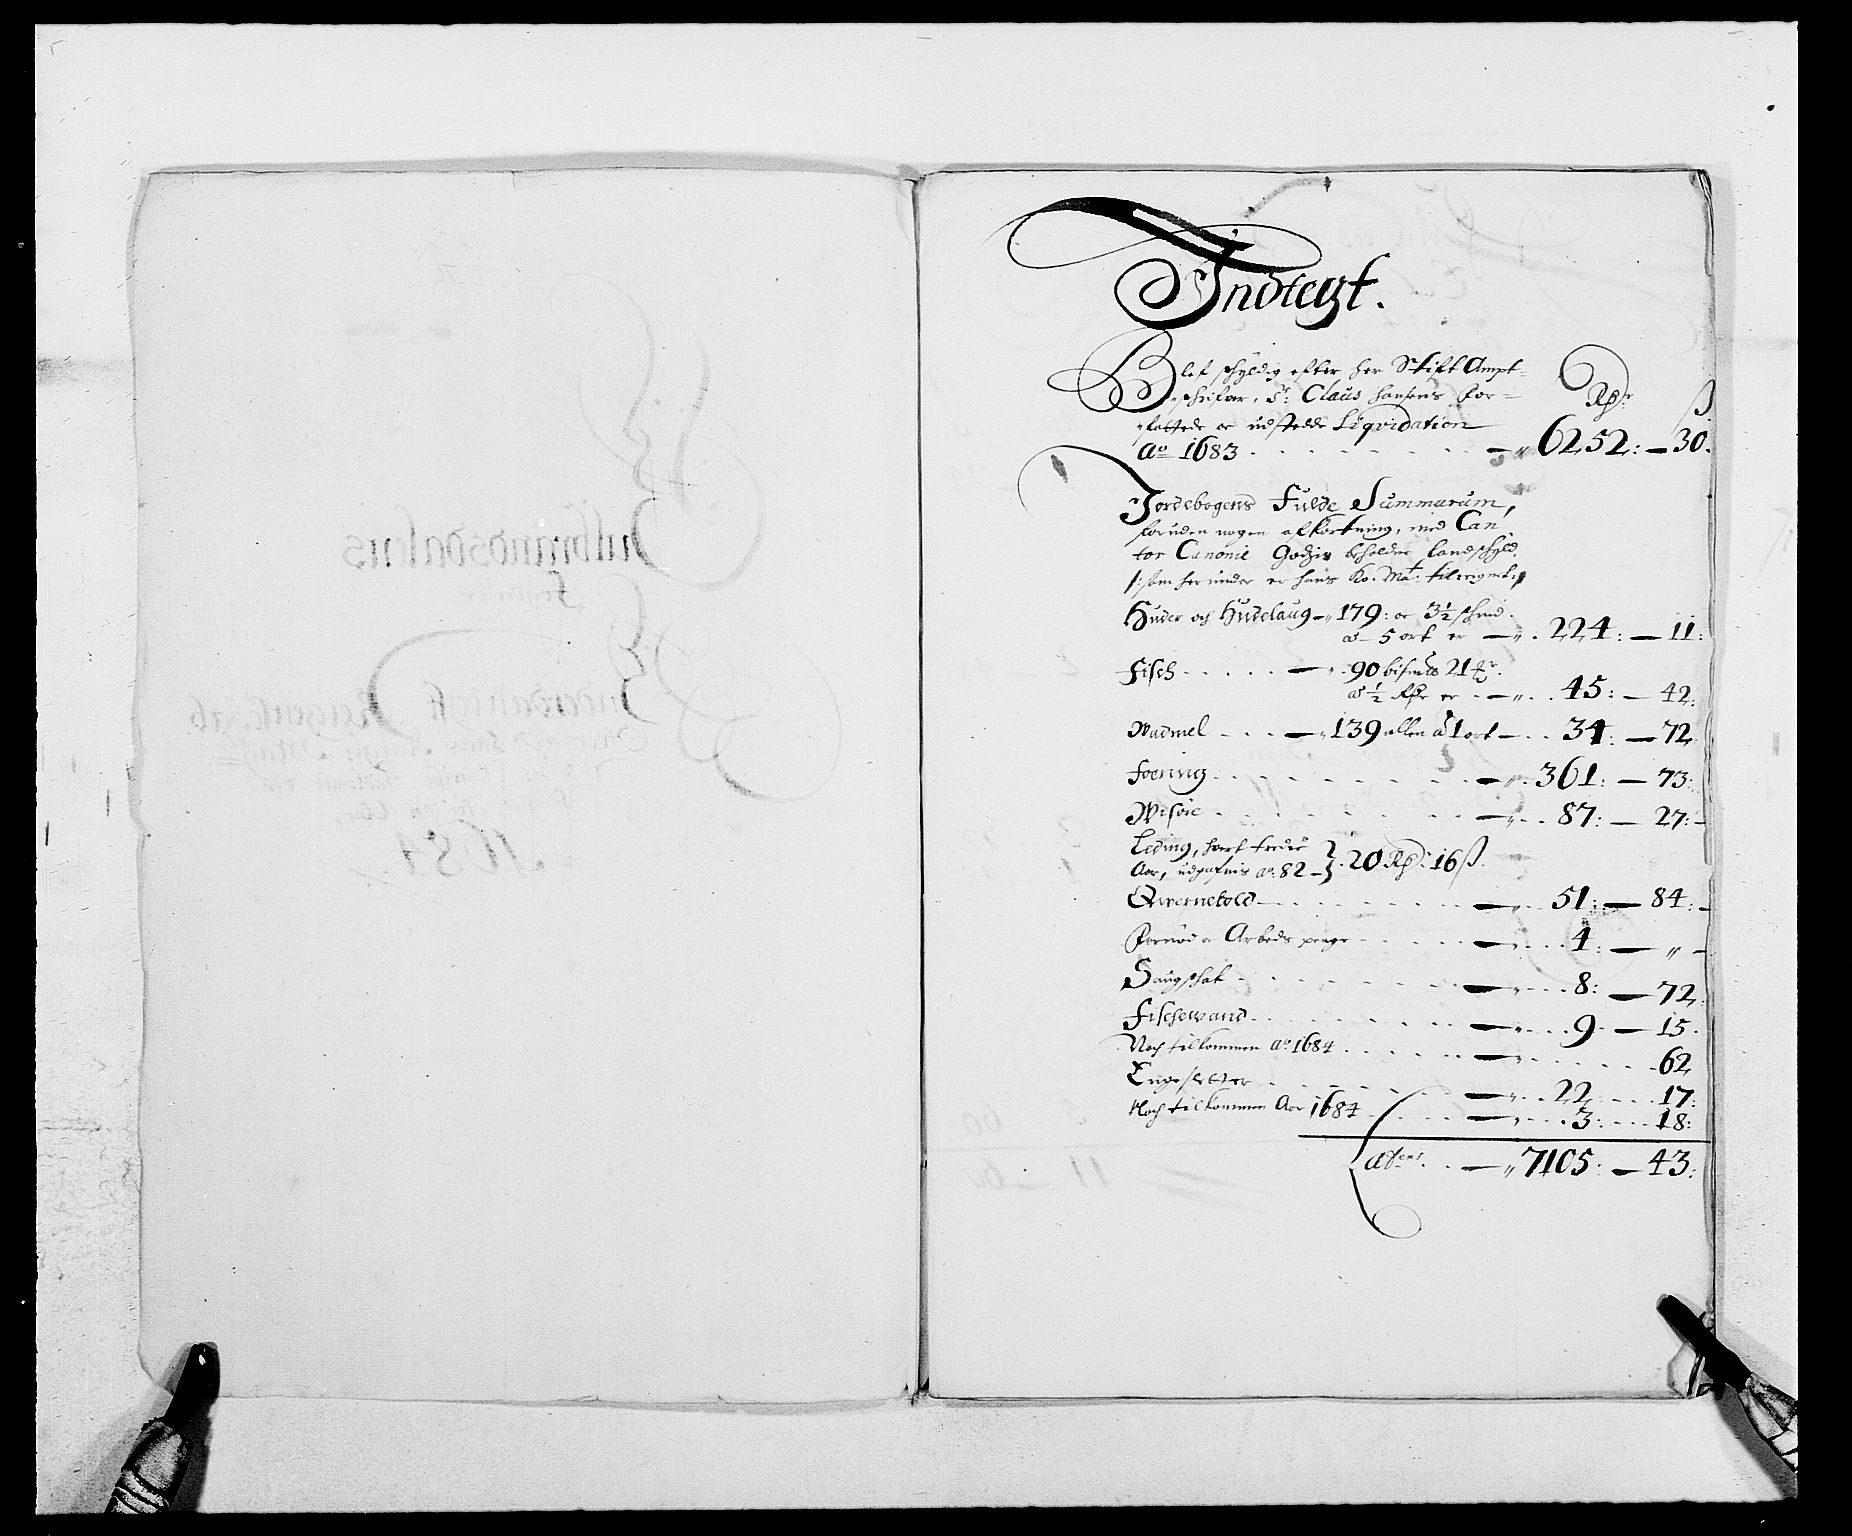 Indtegt.
Blef schyldig efter her Stift Ampt-
schrifver, Sr: Claus Hansens for-
fattede oc udstedde Liqvidation
Rdr ß
Ao 1683 . . . . . . . . — „ 6252: — 30.
Jordebogens Fulde Summarum,
foruden nogen afkortning, med Can
tor Canonie Godzis beholdne Landschyld,
/:som herunder er hans Ko. Matt: tilregnet:/
Huder och Hudelaug — „ 179: oc 3½ schind.
a 5 ort er — „ . 224: — 11:
Fisch . . . . . — „ . 90 bismer 21 .
a ½ Rdr er . — „ . . 45: — 42:
Wadmel . . . — „ 139 allen a 1 ort — . . 34: — 72
Foering . . . . . . . . — „ . 361: — 73:
Wisøie . . . . . . . . — „ . . 87: — 27:
Leding, hvert tredie
Aar, udgafvis ao: 82 — } . 20 Rdr: 16 ß.
Qvernetold — . . . . . . — „ . . 51: — 84:
Fornød oc Arbeds penge . . . . — „ . . . 4: — „
Saugschat . . . . . . . — „ . . . 8: — 72:
Fischewand . . . . . . . — „ . . . 9 — 15.
Noch tilkommen ao 1684 . . . . . — „ . . . . . . 62
Engesletter . . . . . . — „ . . 22 . . . . 17:
Noch tilkommen Aar 1684 . . . . — „ . . . 3: . . . 18:
. . — „ 7105: — 43:
Gulbrandsdalens
1684